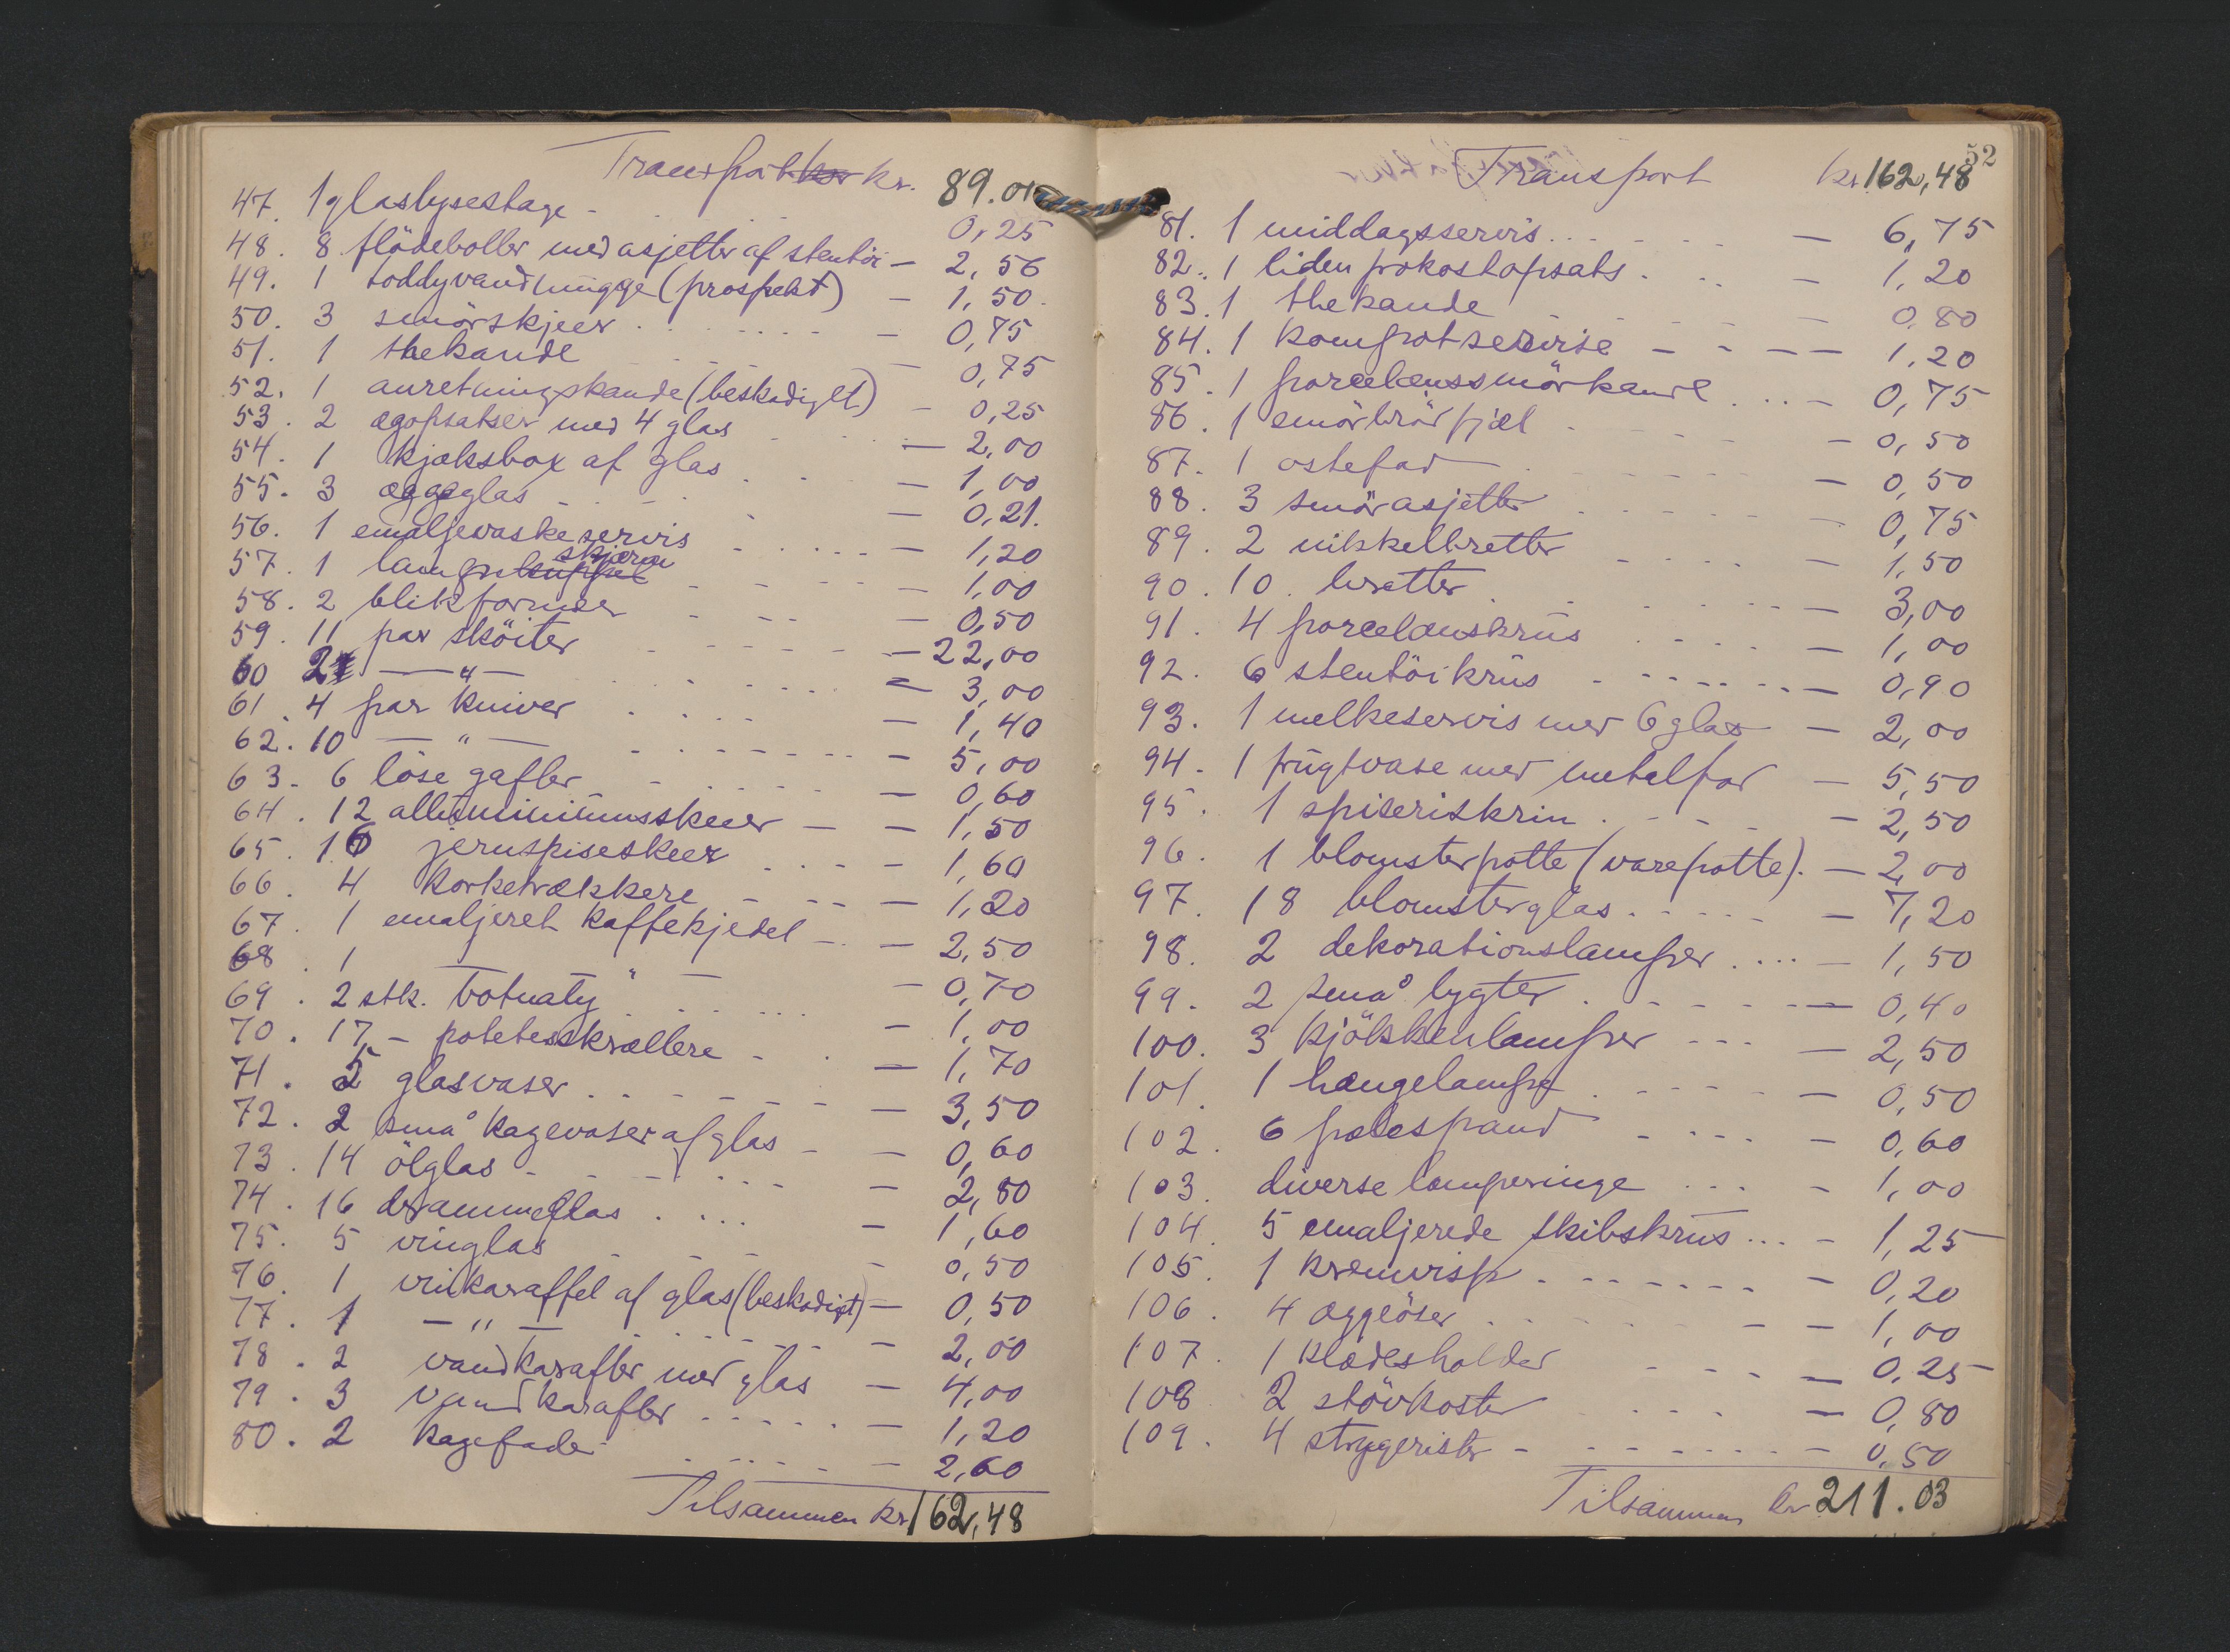 Transport kr. 89.01
47. 1 glaslysestage - 0,25
48. 8 flödeboller med asjetter af stentöi - 2,56
49. 1 toddyvandmugge (prospekt) - 1,50
50. 3 smörskjeer - 0,75
51. 1 thekande - 0,75
52. 1 anretningskande (beskadiget) - 0,25
53. 2 ægopsatser med 4 glas - 2,00
54. 1 kjæksbox af glas - 1,00
55. 3 æggeglas - 0,21.
56. 1 emaljevaskeservis - 1,20
57. 1 lampeskjærm - 1,00
58. 2 blikformer - 0,50
59. 11 par sköiter - 22,00
60 2 — " — - 3,00
61. 4 par kniver - 1,40
62. 10 — " — - 5,00
63. 6 löse gafler - 0,60
64. 12 alluminiumsskeer - 1,50
65. 16 jernspiseskeer - 1,60
66. 4 korketrækkere - 1,20
67. 1 emaljeret kaffekjedel - 2,50
68. 1 — " — - 0,70
69. 2 stk. trotuaty - 1,00
70. 17 - potetesskrællere - 1,70
71. 5 glasvaser - 3,50
72. 2 små kagevaser af glas - 0,60
73. 14 ölglas - 2,80
74. 16 drammeglas - 1,60
75. 5 vinglas - 0,50
76. 1 vinkaraffel af glas (beskadiget) - 0,50
77. 1 — " — - 2,00
78. 2 vandkarafler med glas - 4,00
79. 3 vandkarafler - 1,20
80. 2 kagefade - 2,60
Tilsammen kr. 162,48
52
Transport kr 162,48
81. 1 middagsservis - 6,75
82. 1 liden frokostopsats - 1,20
83. 1 thekande - 0,80
84. 1 kompotservise - 1,20
85. 1 porcelænssmörkande - 0,75
86. 1 smörbrödfjæl - 0,50
87. 1 ostefad - 0,50
88. 3 smörasjetter - 0,75
89. 2 nikkelbretter - 1,50
90. 10 bretter - 3,00
91. 4 porcelænskrus - 1,00
92. 6 stentöikrus - 0,90
93. 1 melkeservis med 6 glas - 2,00
94. 1 frugtvase med metalfod - 5,50
95. 1 spiseriskrin - 2,50
96. 1 blomsterpotte (varepotte). - 2,00
97. 18 blomsterglas - 7,20
98. 2 dekorationslamper - 1,50
99. 2 små lygter - 0,40
100. 3 kjökkenlamper - 2,50
101. 1 hængelampe - 0,50
102. 6 potespand - 0,60
103. diverse lamperinge - 1,00
104. 5 emaljerede skibskrus - 1,25
105. 1 kremvisp - 0,20
106. 4 æggeöser - 1,00
107. 1 klædesholder - 0,25
108 2 stövkoster - 0,80
109. 4 strygerister - 0,50
Tilsammen kr 211.03